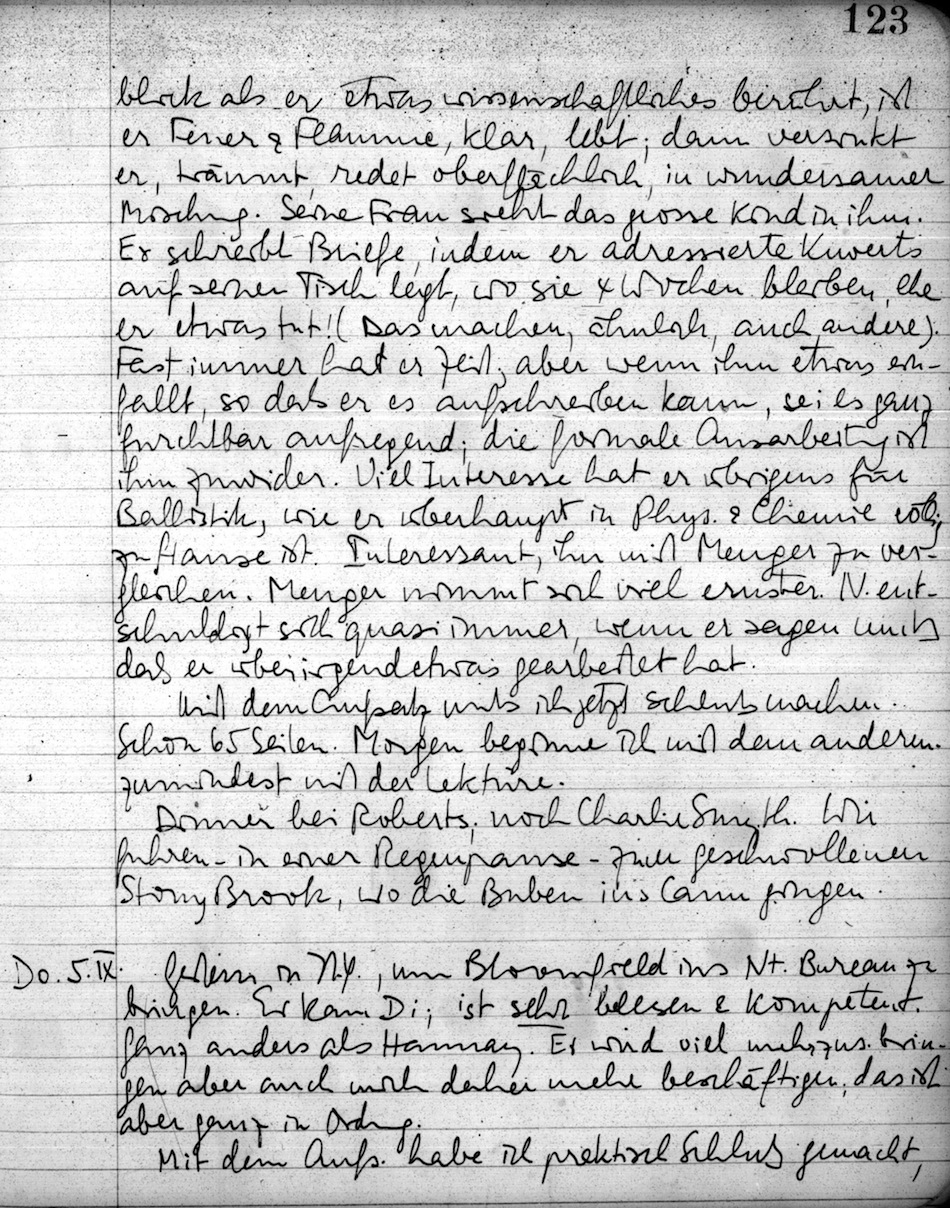 123
blick als er etwas wissenschaftliches berührt, ist
er Feuer & Flamme, klar, lebt; dann versinkt
er, träumt, redet oberflächlich, in wundersamer
Mischung. Seine Frau sieht das grosse Kind in ihm.
Er schreibt Briefe, indem er adressierte Kuverts
auf seinen Tisch legt, wo sie 4 Wochen bleiben, ehe
er etwas tut! (Das machen, ähnlich, auch andere).
Fast immer hat er Zeit, aber wenn ihm etwas ein-
fällt, so dass er es aufschreiben kann, sei es ganz
furchtbar aufregend; die formale Ausarbeitung ist
ihm zuwider. Viel Interesse hat er übrigens für
Ballistik, wie er überhaupt in Phys. & Chemie völlig
zu Hause ist. Interessant, ihn mit Menger zu ver-
gleichen. Menger nimmt sich viel ernster. N. ent-
schuldigt sich quasi immer, wenn er sagen muss
dass er über irgendetwas gearbeitet hat.
Mit dem Aufsatz muss ich jetzt Schluss machen.
Schon 65 Seiten. Morgen beginne ich mit dem anderen.
zumindest mit der Lektüre.
Dinner bei Roberts, noch Charlie Smyth. Wir
fuhren - in einer Regenpause - zum geschwollenen
Stony Brook, wo die Buben ins Canu gingen.
Do. 5. IX. Gestern in N.Y., um Bloomfield ins Nt. Bureau zu
bringen. Er kam Di; ist sehr belesen & kompetent.
Ganz anders als Hannay. Er wird viel mehr zus. brin-
gen aber auch mich daher mehr beschäftigen; das ist
aber ganz in Ordng.
Mit dem Aufs. habe ich praktisch Schluss gemacht,